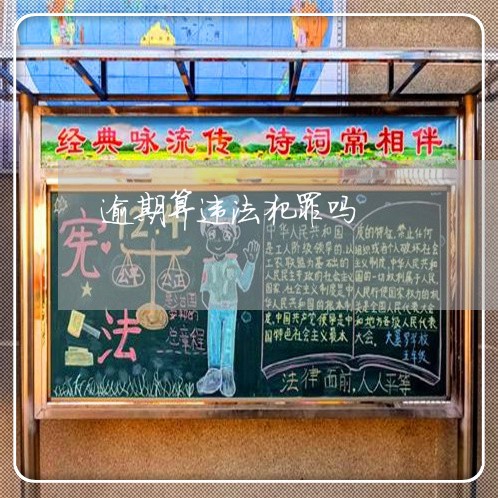 经典咏流传 诗词常相伴
逾期算违法犯罪吗
12.4
宪
法
公平
公正
总章程
中华人民共和国
是工人阶级领导的,以
工农联盟为基础的
人民民主专政的社会主义
国家,社会主义制度是中
华人民共和国的根本制
度,中国共产党领导是中
国特色社会主义最本
质的特征,禁止任何
组织或者个人破坏社会
主义制度,中华人民共和
国的一切权利属于人民,
人民行使国家权力的机
关是全国人民代表大会
和地方各级人民代表
大会。
五年级
法律面前,人人平等